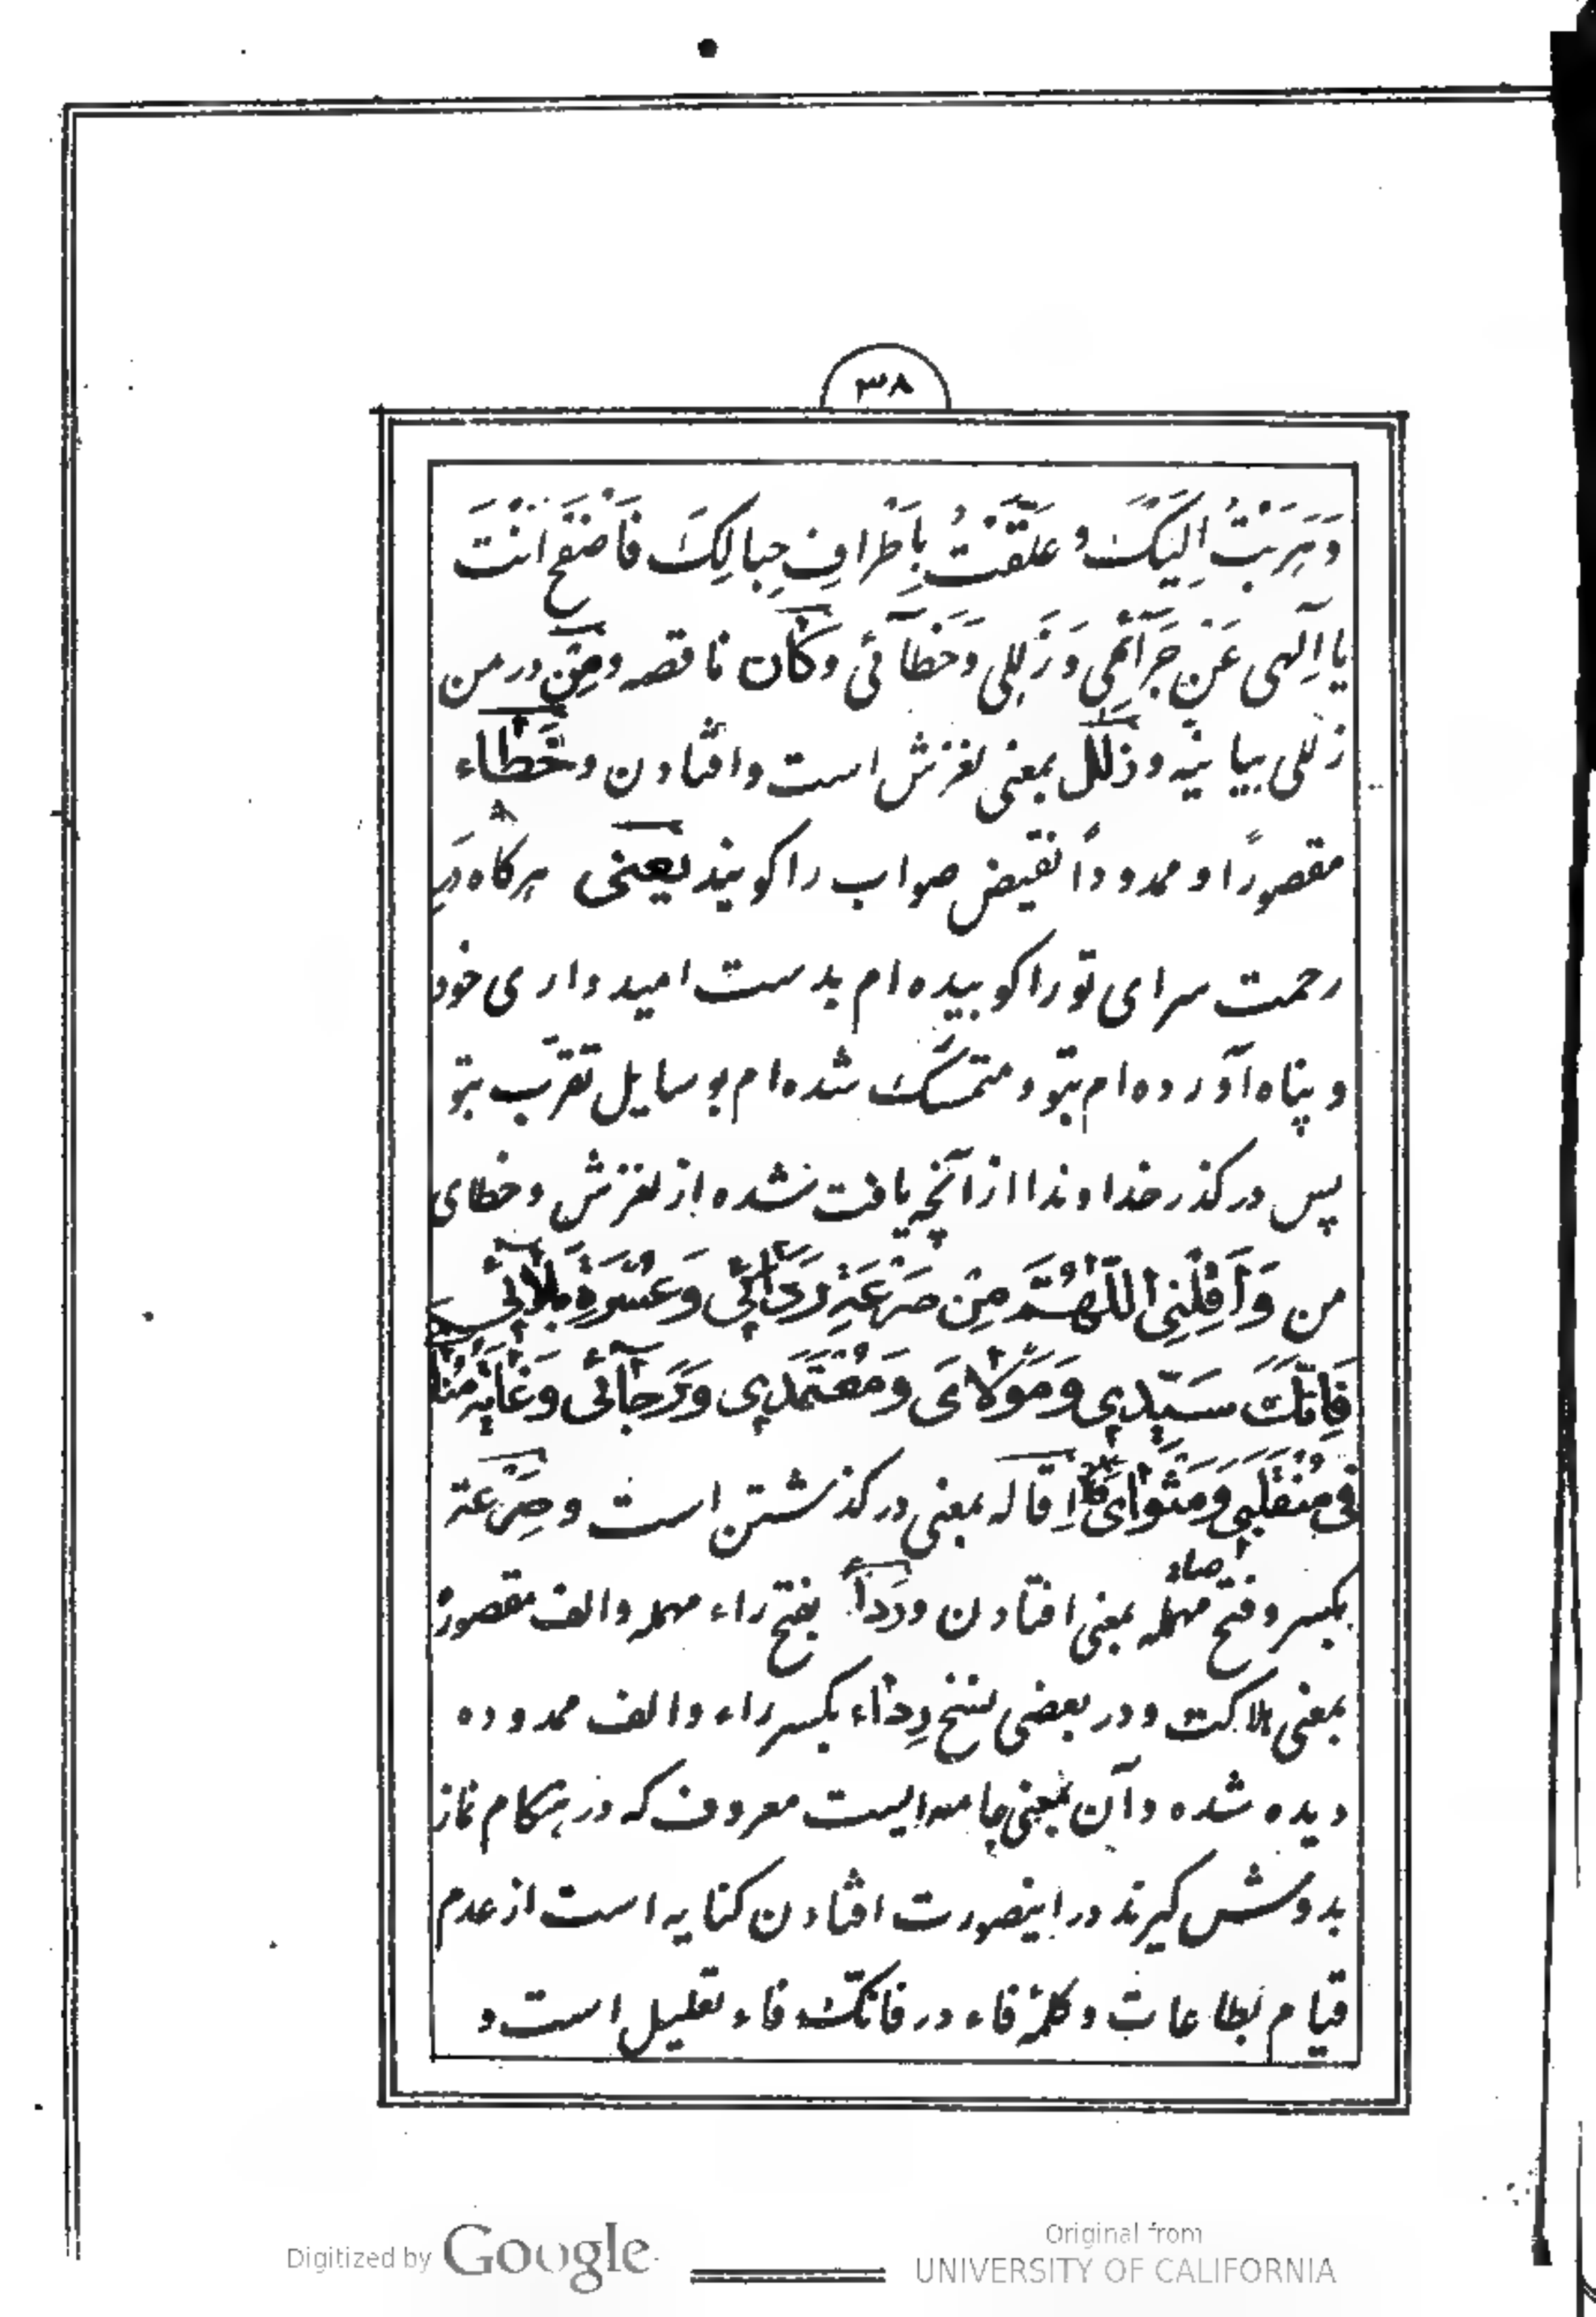 ۳۸
وَهَرَبْتُ اِلَیْکَ وَ عَلَّقْتُ بِاَطْرافِ حِبالِکَ فَاصْفَحْ اَنْتَ
یا اِلٰهی عَنْ جَرآئِمی وَ زَلَلی وَ خَطآئی وکان ناقصه ومِن در من
زللی بیانیّه و ذلَل بمعنی لغزش است وافتادن و خَطاء
مقصورًا و ممدوداً نقیض صواب را گویند یعنی هرگاه در
رحمت سرای تو را کوبیده ام بدست امیدواری خود
و پناه آورده ام بتو و متمسّک شده ام بوسایل تقرّب بتو
پس درگذر خداوندا از آنچه یافت شده از لغزش و خطای
من وَ اَقِلْنِی اللّهُمَّ مِنْ صَرْعَةِ رَدآئی وَ عُسْرَةِ بَلآئی
فَاِنَّکَ سَیِّدِی وَ مَوْلایَ وَ مُعْتَمَدِی وَ رَجآئی وَ غایَةِ مُنا
فی مُنْقَلَبی وَ مَثْوایَ اِقاله بمعنی درگذشتن است و صِرْعَة
بکسر و فتح صاد مهمله بمعنی افتادن و رَدا بفتح راء مهمله والف مقصورهٔ
بمعنی هلاکت و در بعضی نسخ رِداء بکسر راء والف ممدوده
دیده شده و آن بمعنی جامه ایست معروف که در هنگام نماز
بدوش گیرند در اینصورت افتادن کنایه است از عدم
قیام بطاعات و کلمهٔ فاء در فانّک فاء تعلیل است و
Digitized by Google
Original from
UNIVERSITY OF CALIFORNIA